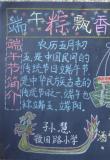 端午粽飘香
端午节简介
农历五月初
五,是中国民间的
传统节日端午节
是中华民族
的传统节日。端午
也称端五,端阳。
孙慧